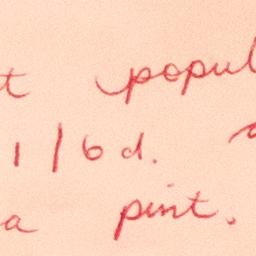 t popul
1/6d.
a pint.